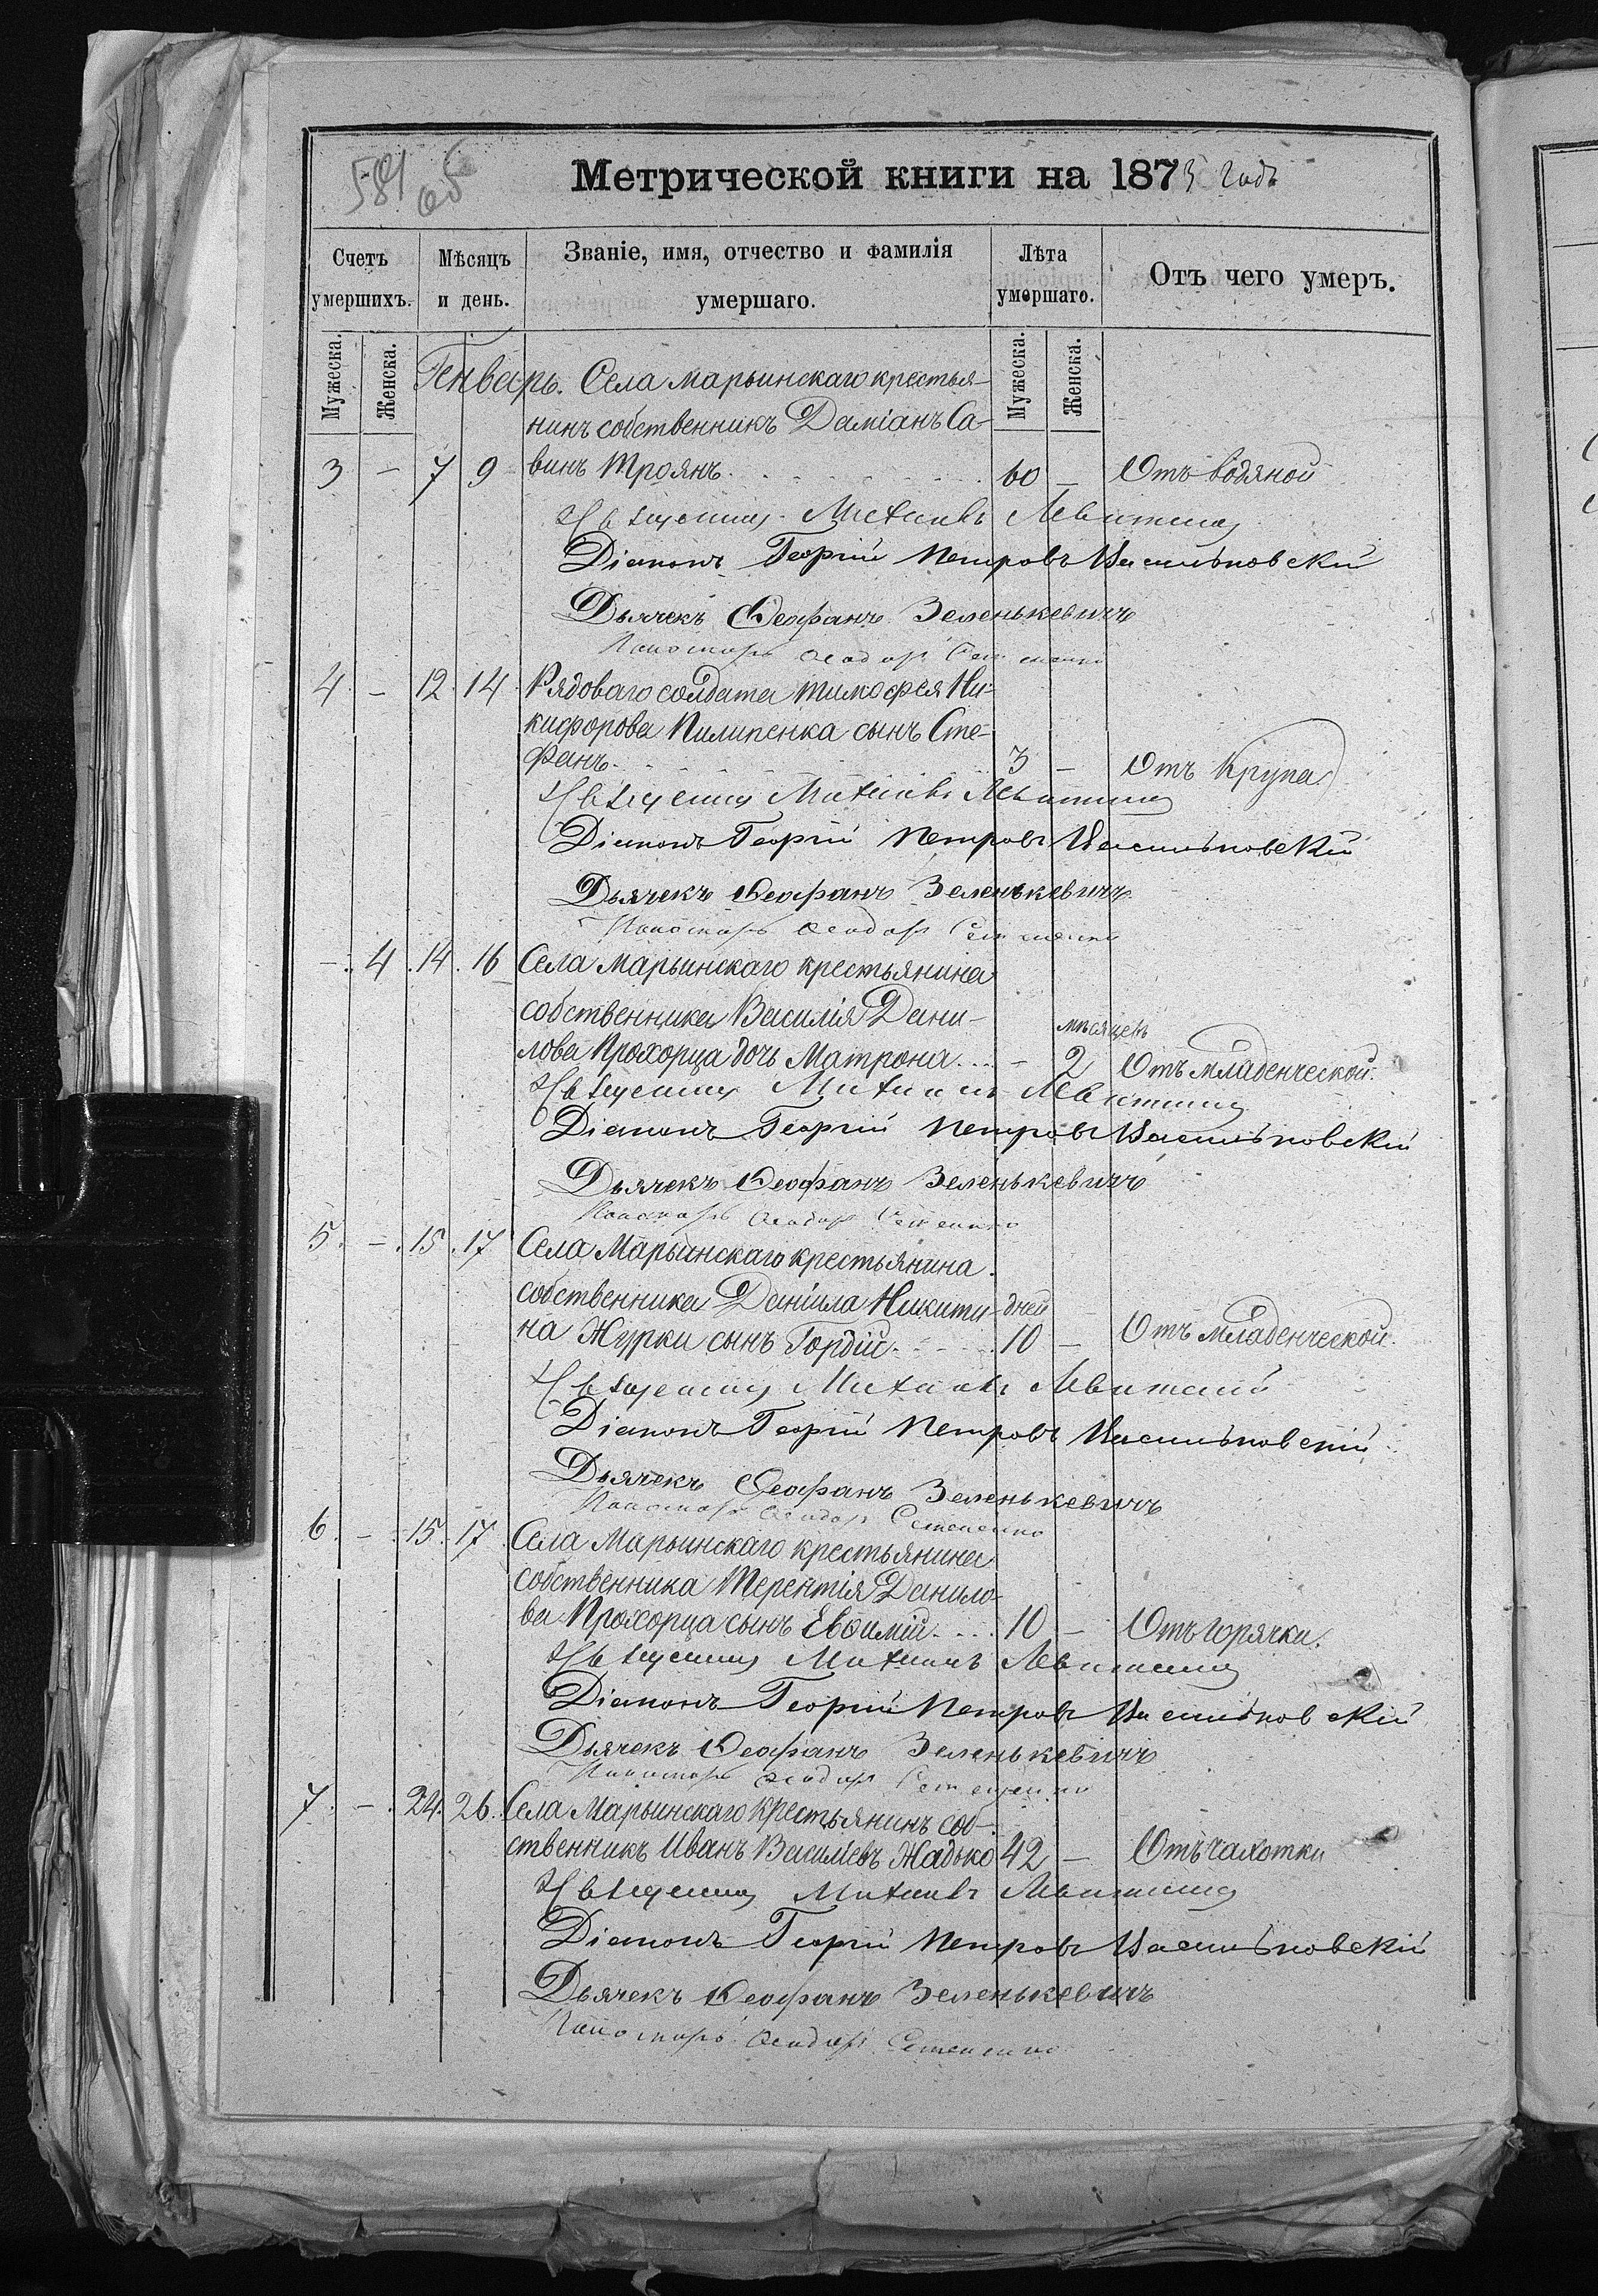 581 об
Метрической книги на 1873 годъ
Счетъ умершихъ.
Мѣсяцъ и день.
Званіе, имя, отчество и фамилія умершаго.
Лѣта умершаго.
Отъ чего умеръ.
Мужеска. Женска. Мужеска. Женска.
Генварь. Села Марьинскаго крестья-
нинъ собственникъ Даміанъ Са-
3 - 7 9 винъ Троянъ. 60 - Отъ водяной
Священникъ Михаилъ Левитскій
Діаконъ Георгій Петровъ Васильковскій
Дьячекъ Ѳеофанъ Зеленькевичъ
Пономарь
4 - 12 14 Рядоваго солдата Тимофея Ни-
кифорова Пилипенка сынъ Сте-
фанъ. 3 - Отъ Крупа
Священникъ Михаилъ Левитскій
Діаконъ Георгій Петровъ Васильковскій
Дьячекъ Ѳеофанъ Зеленькевичъ
Пономарь
- 4 14 16 Села Марьинскаго крестьянина
собственника Василія Дани- мѣсяцевъ
лова Прохорца дочь Матрона. - 2 Отъ младенческой.
Священникъ Михаилъ Левитскій
Діаконъ Георгій Петровъ Васильковскій
Дьячекъ Ѳеофанъ Зеленькевичъ
Пономарь
5 - 15 17 Села Марьинскаго крестьянина
собственника Даніила Никити- дней
на Журки сынъ Гордій. 10 - Отъ младенческой.
Священникъ Михаилъ Левитскій
Діаконъ Георгій Петровъ Васильковскій
Дьячекъ Ѳеофанъ Зеленькевичъ
Пономарь
6 - 15 17 Села Марьинскаго крестьянина
собственника Терентія Данило-
ва Прохорца сынъ Евѳимій. 10 - Отъ горячки.
Священникъ Михаилъ Левитскій
Діаконъ Георгій Петровъ Васильковскій
Дьячекъ Ѳеофанъ Зеленькевичъ
Пономарь
7 - 24 26 Села Марьинскаго Крестьянинъ соб-
ственникъ Иванъ Василіевъ Жадько 42 - Отъ чахотки
Священникъ Михаилъ Левитскій
Діаконъ Георгій Петровъ Васильковскій
Дьячекъ Ѳеофанъ Зеленькевичъ
Пономарь